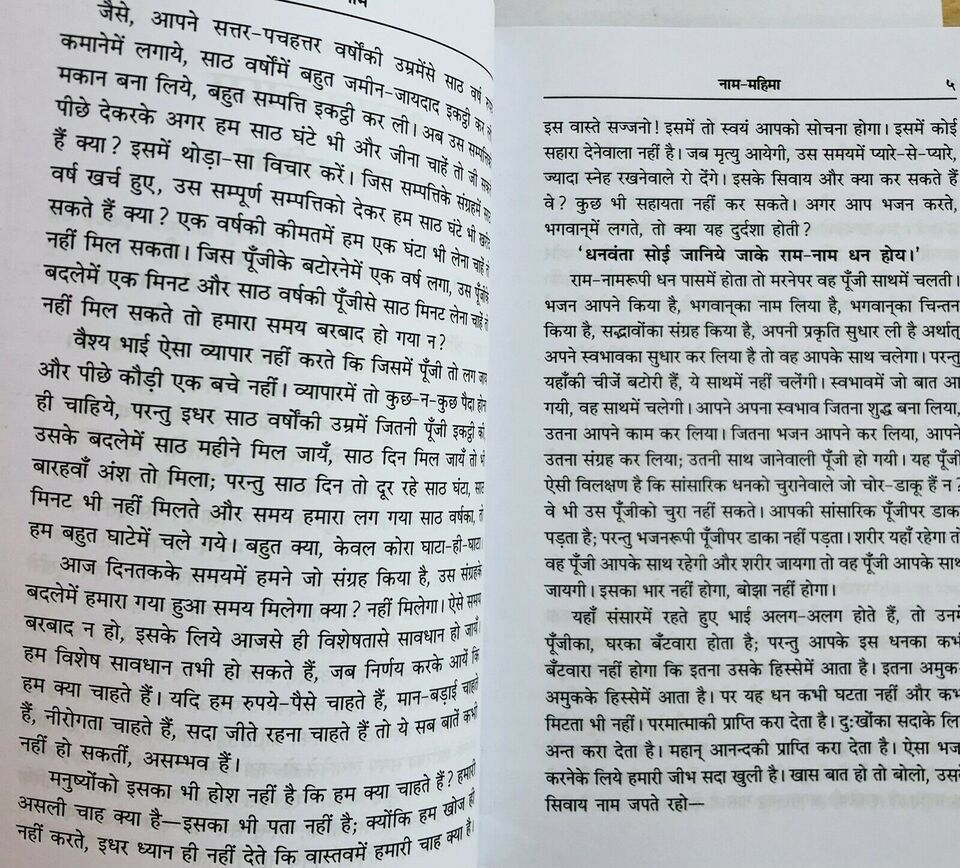 नाम
जैसे, आपने सत्तर-पचहत्तर वर्षोंकी उम्रमेंसे साठ वर्ष
कमानेमें लगाये, साठ वर्षोंमें बहुत जमीन-जायदाद इकट्ठी कर
मकान बना लिये, बहुत सम्पत्ति इकट्ठी कर ली। अब उस सम्पत्तिको
पीछे देकरके अगर हम साठ घंटे भी और जीना चाहें तो जी
हैं क्या? इसमें थोड़ा-सा विचार करें। जिस सम्पत्तिके संग्रहमें
वर्ष खर्च हुए, उस सम्पूर्ण सम्पत्तिको देकर हम साठ घंटे भी
सकते हैं क्या? एक वर्षकी कीमतमें हम एक घंटा भी लेना चाहें
नहीं मिल सकता। जिस पूँजीके बटोरनेमें एक वर्ष लगा, उस पूँजीके
बदलेमें एक मिनट और साठ वर्षकी पूँजीसे साठ मिनट लेना चाहें
नहीं मिल सकते तो हमारा समय बरबाद हो गया न?
वैश्य भाई ऐसा व्यापार नहीं करते कि जिसमें पूँजी तो लग जाय
और पीछे कौड़ी एक बचे नहीं। व्यापारमें तो कुछ-न-कुछ पैदा होना
ही चाहिये, परन्तु इधर साठ वर्षोंकी उम्रमें जितनी पूँजी इकट्ठी की,
उसके बदलेमें साठ महीने मिल जायँ, साठ दिन मिल जायँ तो भी
बारहवाँ अंश तो मिला; परन्तु साठ दिन तो दूर रहे साठ घंटा, साठ
मिनट भी नहीं मिलते और समय हमारा लग गया साठ वर्षका, तो
हम बहुत घाटेमें चले गये। बहुत क्या, केवल कोरा घाटा-ही-घाटा।
आज दिनतकके समयमें हमने जो संग्रह किया है, उस संग्रहके
बदलेमें हमारा गया हुआ समय मिलेगा क्या? नहीं मिलेगा। ऐसे समय
बरबाद न हो, इसके लिये आजसे ही विशेषतासे सावधान हो जायँ।
हम विशेष सावधान तभी हो सकते हैं, जब निर्णय करके आयें कि
हम क्या चाहते हैं। यदि हम रुपये-पैसे चाहते हैं, मान-बड़ाई चाहते
हैं, नीरोगता चाहते हैं, सदा जीते रहना चाहते हैं तो ये सब बातें कभी
नहीं हो सकतीं, असम्भव हैं।
मनुष्योंको इसका भी होश नहीं है कि हम क्या चाहते हैं? हमारी
असली चाह क्या है—इसका भी पता नहीं है; क्योंकि हम खोज ही
नहीं करते, इधर ध्यान ही नहीं देते कि वास्तवमें हमारी चाह क्या है।
नाम-महिमा ५
इस वास्ते सज्जनो! इसमें तो स्वयं आपको सोचना होगा। इसमें कोई
सहारा देनेवाला नहीं है। जब मृत्यु आयेगी, उस समयमें प्यारे-से-प्यारे,
ज्यादा स्नेह रखनेवाले रो देंगे। इसके सिवाय और क्या कर सकते हैं
वे? कुछ भी सहायता नहीं कर सकते। अगर आप भजन करते,
भगवान्‌में लगते, तो क्या यह दुर्दशा होती?
‘धनवंता सोई जानिये जाके राम-नाम धन होय।’
राम-नामरूपी धन पासमें होता तो मरनेपर वह पूँजी साथमें चलती।
भजन आपने किया है, भगवान्‌का नाम लिया है, भगवान्‌का चिन्तन
किया है, सद्भावोंका संग्रह किया है, अपनी प्रकृति सुधार ली है अर्थात्
अपने स्वभावका सुधार कर लिया है तो वह आपके साथ चलेगा। परन्तु
यहाँकी चीजें बटोरी हैं, ये साथमें नहीं चलेंगी। स्वभावमें जो बात आ
गयी, वह साथमें चलेगी। आपने अपना स्वभाव जितना शुद्ध बना लिया,
उतना आपने काम कर लिया। जितना भजन आपने कर लिया, आपने
उतना संग्रह कर लिया; उतनी साथ जानेवाली पूँजी हो गयी। यह पूँजी
ऐसी विलक्षण है कि सांसारिक धनको चुरानेवाले जो चोर-डाकू हैं न?
वे भी उस पूँजीको चुरा नहीं सकते। आपकी सांसारिक पूँजीपर डाका
पड़ता है; परन्तु भजनरूपी पूँजीपर डाका नहीं पड़ता। शरीर यहाँ रहेगा तो
वह पूँजी आपके साथ रहेगी और शरीर जायगा तो वह पूँजी आपके साथ
जायगी। इसका भार नहीं होगा, बोझा नहीं होगा।
यहाँ संसारमें रहते हुए भाई अलग-अलग होते हैं, तो उनमें
पूँजीका, घरका बँटवारा होता है; परन्तु आपके इस धनका कभी
बँटवारा नहीं होगा कि इतना उसके हिस्सेमें आता है। इतना अमुक-
अमुकके हिस्सेमें आता है। पर यह धन कभी घटता नहीं और कभी
मिटता भी नहीं। परमात्माकी प्राप्ति करा देता है। दुःखोंका सदाके लिये
अन्त करा देता है। महान् आनन्दकी प्राप्ति करा देता है। ऐसा भजन
करनेके लिये हमारी जीभ सदा खुली है। खास बात हो तो बोलो, उसके
सिवाय नाम जपते रहो—